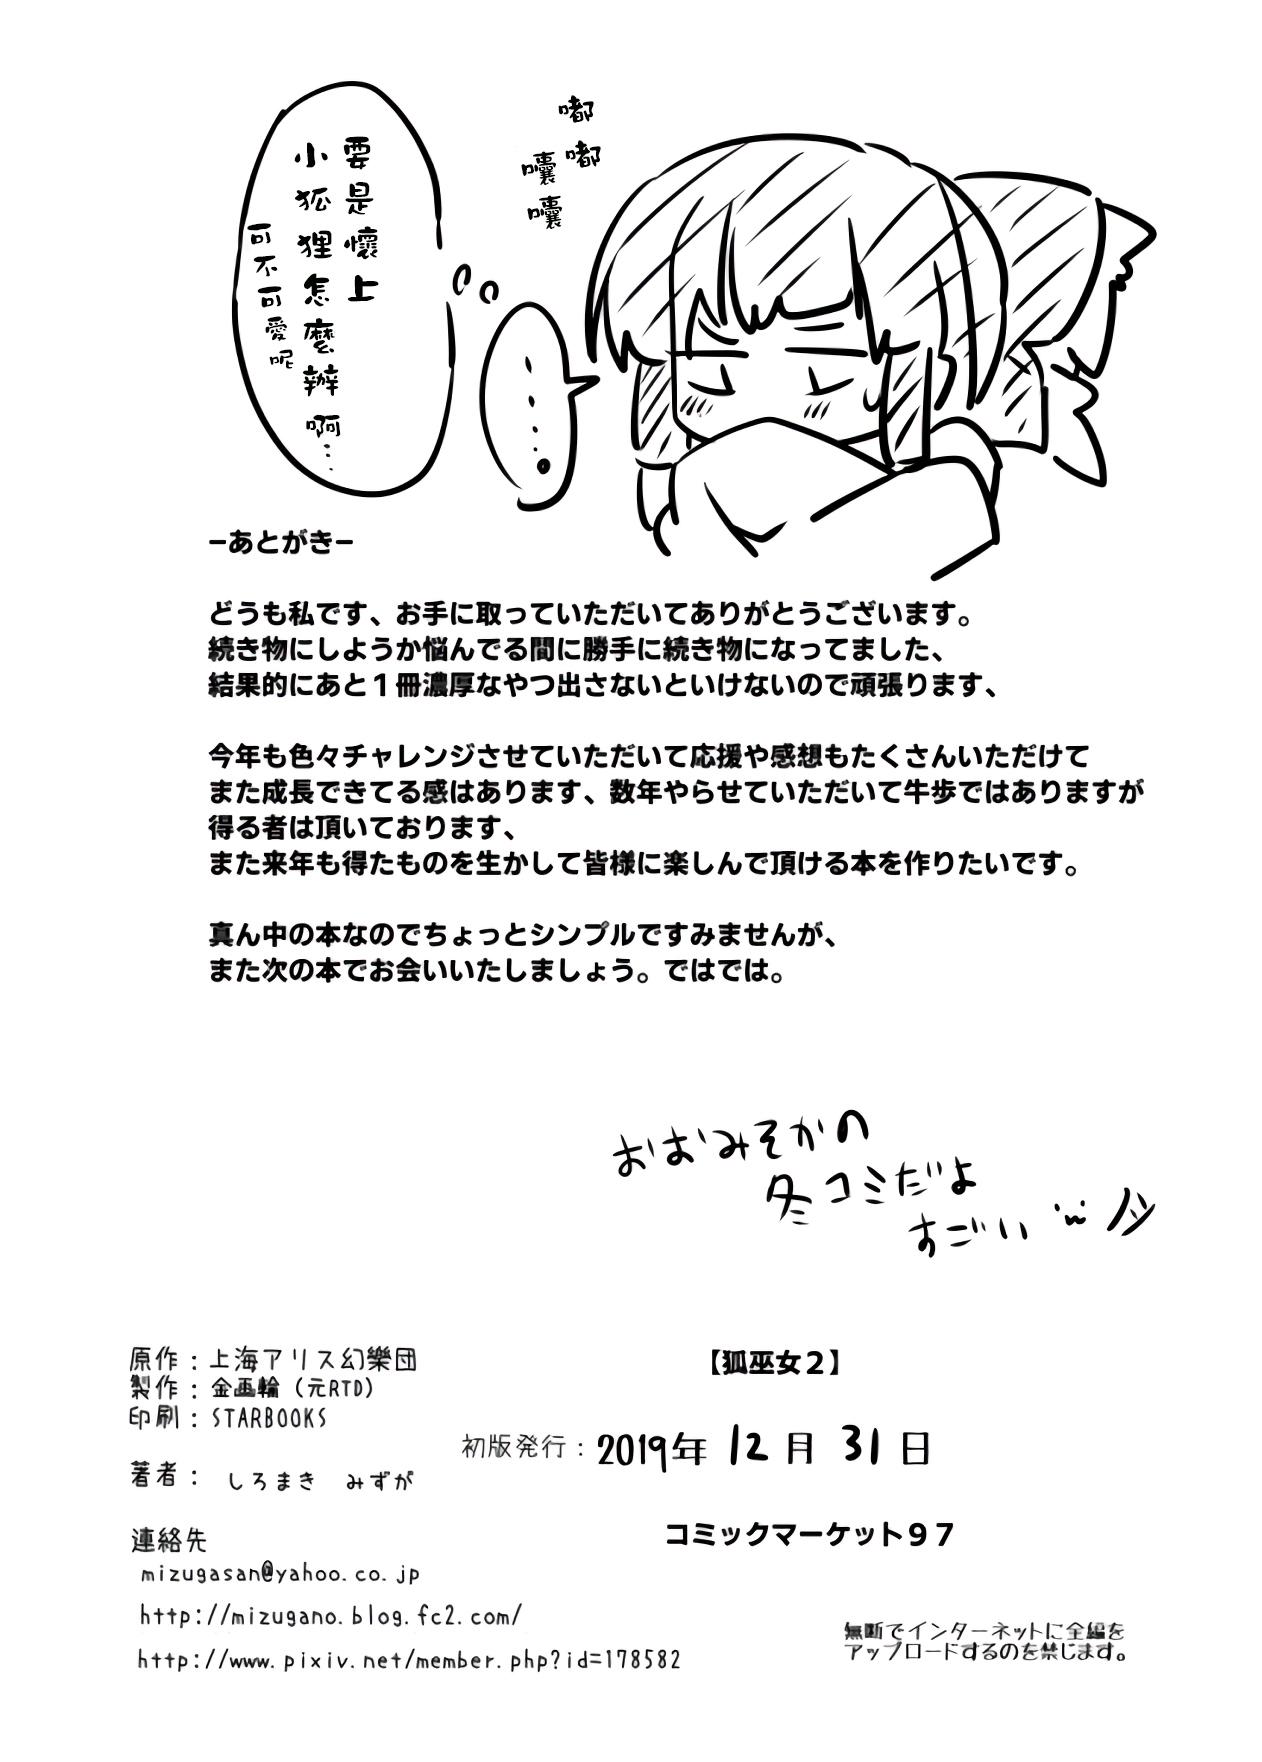 要是懷上
小狐狸怎麼辦啊…
可不可愛呢
嘟嘟
囔囔
……。
−あとがき−
どうも私です、お手に取っていただいてありがとうございます。
続き物にしようか悩んでる間に勝手に続き物になってました、
結果的にあと１冊濃厚なやつ出さないといけないので頑張ります、
今年も色々チャレンジさせていただいて応援や感想もたくさんいただけて
また成長できてる感はあります、数年やらせていただいて牛歩ではありますが
得る者は頂いております、
また来年も得たものを生かして皆様に楽しんで頂ける本を作りたいです。
真ん中の本なのでちょっとシンプルですみませんが、
また次の本でお会いいたしましょう。ではでは。
おおみそかの
冬コミだよ
すごい
原作：上海アリス幻樂団
製作：金画輪（元RTD）
印刷：STARBOOKS
著者： しろまき みずが
連絡先
mizugasan@yahoo.co.jp
http://mizugano.blog.fc2.com/
http://www.pixiv.net/member.php?id=178582
【狐巫女２】
初版発行：2019年 12月 31日
コミックマーケット９７
無断でインターネットに全編を
アップロードするのを禁じます。